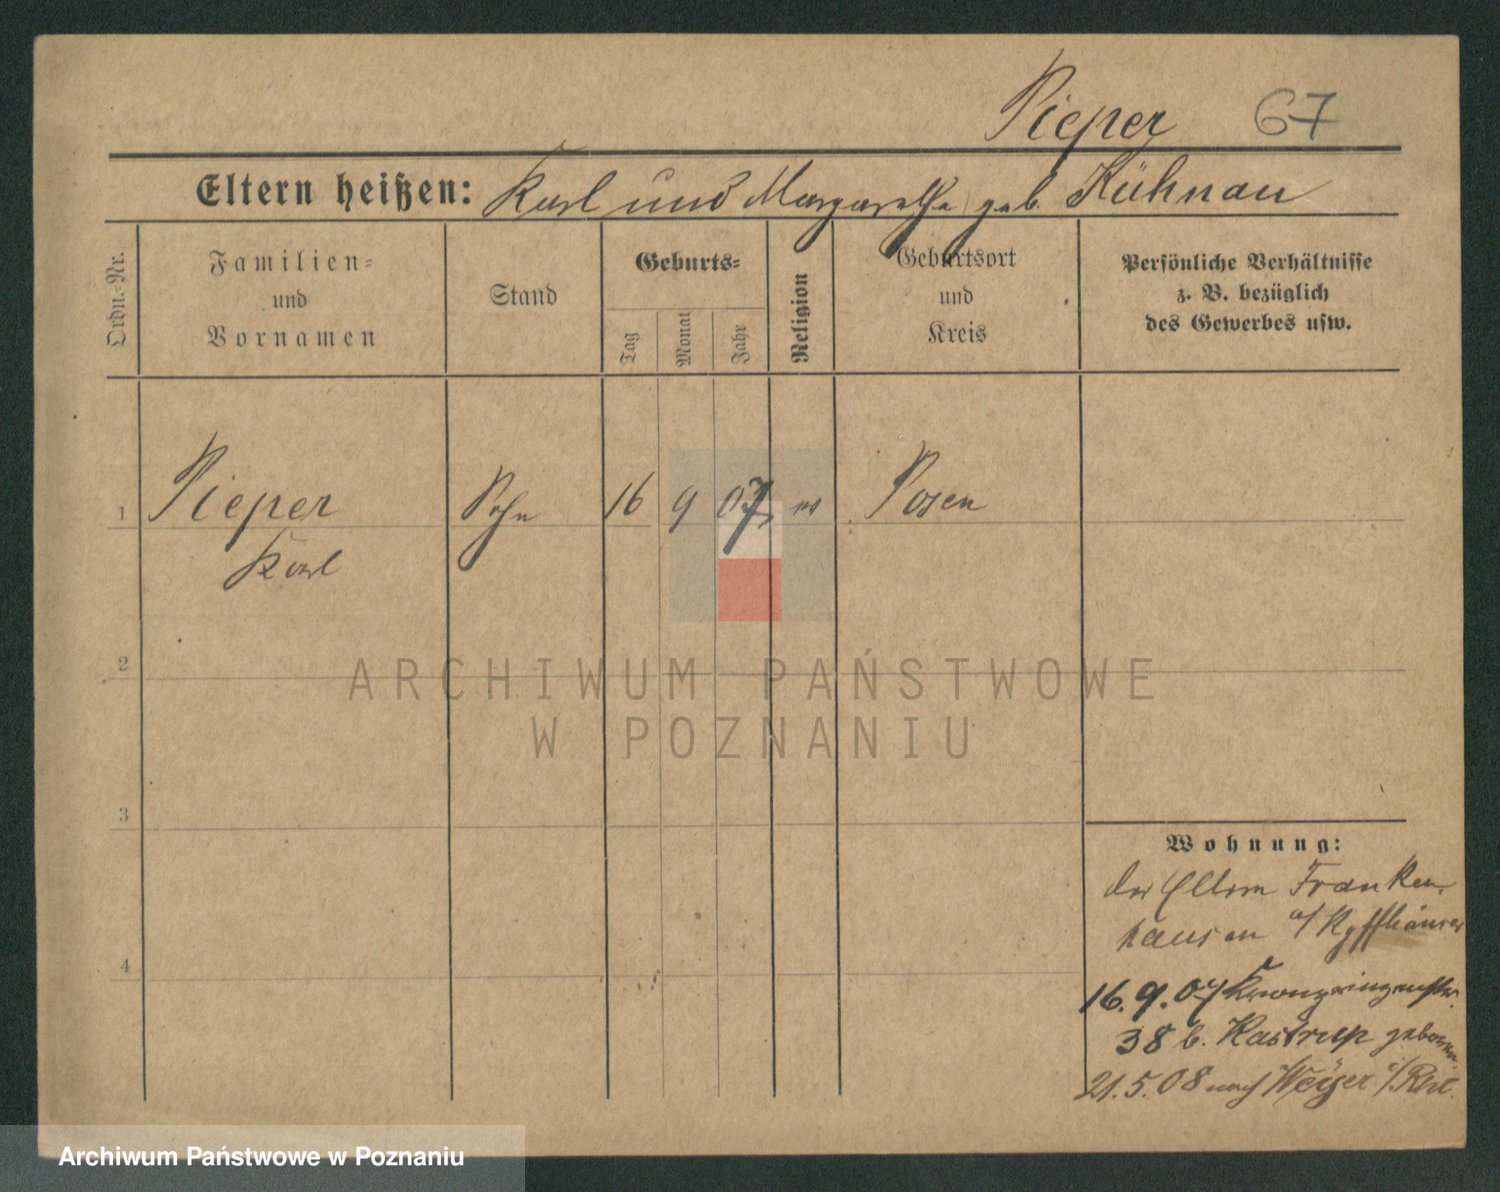 Pieper 67
Eltern heißen: Karl und Margarethe geb. Kühnau
Ordn.-Nr.
Familien-
und
Vornamen
Stand
Geburts-
Tag
Monat
Jahr
Religion
Geburtsort
und
Kreis
Persönliche Verhältnisse
z. B. bezüglich
des Gewerbes usw.
1 Pieper Sohn 16 9 07 ev Posen
Karl
2
3
4
Wohnung:
der Eltern Franken-
hausen a/Kyffhäuser
16.9.07 Kronprinzenstr.
38 b. Kastrup geboren
21.5.08 nach
ARCHIWUM PAŃSTWOWE
W POZNANIU
Archiwum Państwowe w Poznaniu